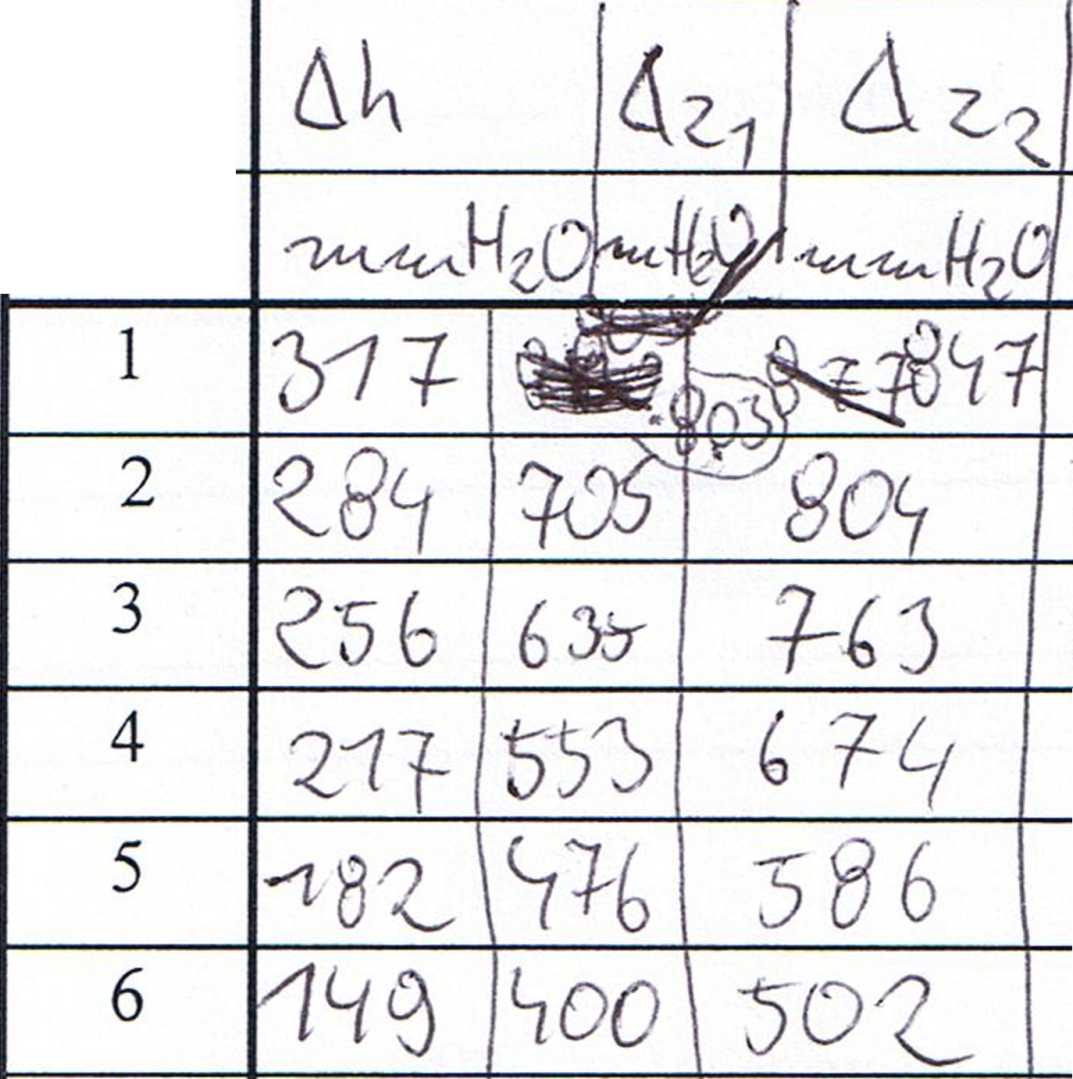 Δh Δz1 Δz2
mmH2O mmH2O mmH2O
1 317 803 847
2 284 705 804
3 256 635 763
4 217 553 674
5 182 476 586
6 149 400 502